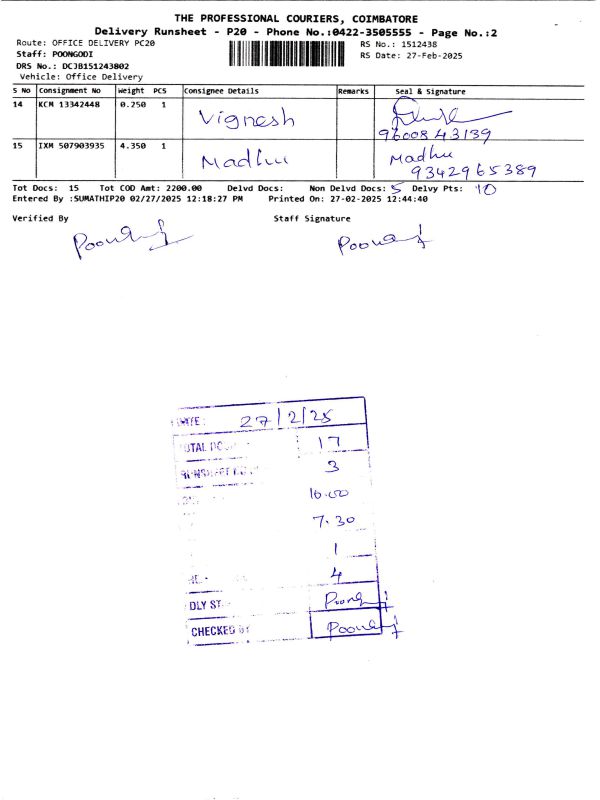 THE PROFESSIONAL COURIERS, COIMBATORE
Delivery Runsheet - P20 - Phone No.:0422-3505555 - Page No.:2
Route: OFFICE DELIVERY PC20
RS No.: 1512438
Staff: POONGODI
RS Date: 27-Feb-2025
DRS No.: DCJB151243802
Vehicle: Office Delivery
S No Consignment No Weight PCS Consignee Details Remarks Seal & Signature
14 KCM 13342448 0.250 1 Vignesh
9600843139
15 IXM 507903935 4.350 1 Madhu Madhu
9342965389
Tot Docs: 15 Tot COD Amt: 2200.00 Delvd Docs: Non Delvd Docs: 5 Delvy Pts: 10
Entered By :SUMATHIP20 02/27/2025 12:18:27 PM Printed On: 27-02-2025 12:44:40
Verified By Staff Signature
DATE: 27/2/25
17
3
10.00
7.30
1
4
DLY ST
CHECKED BY